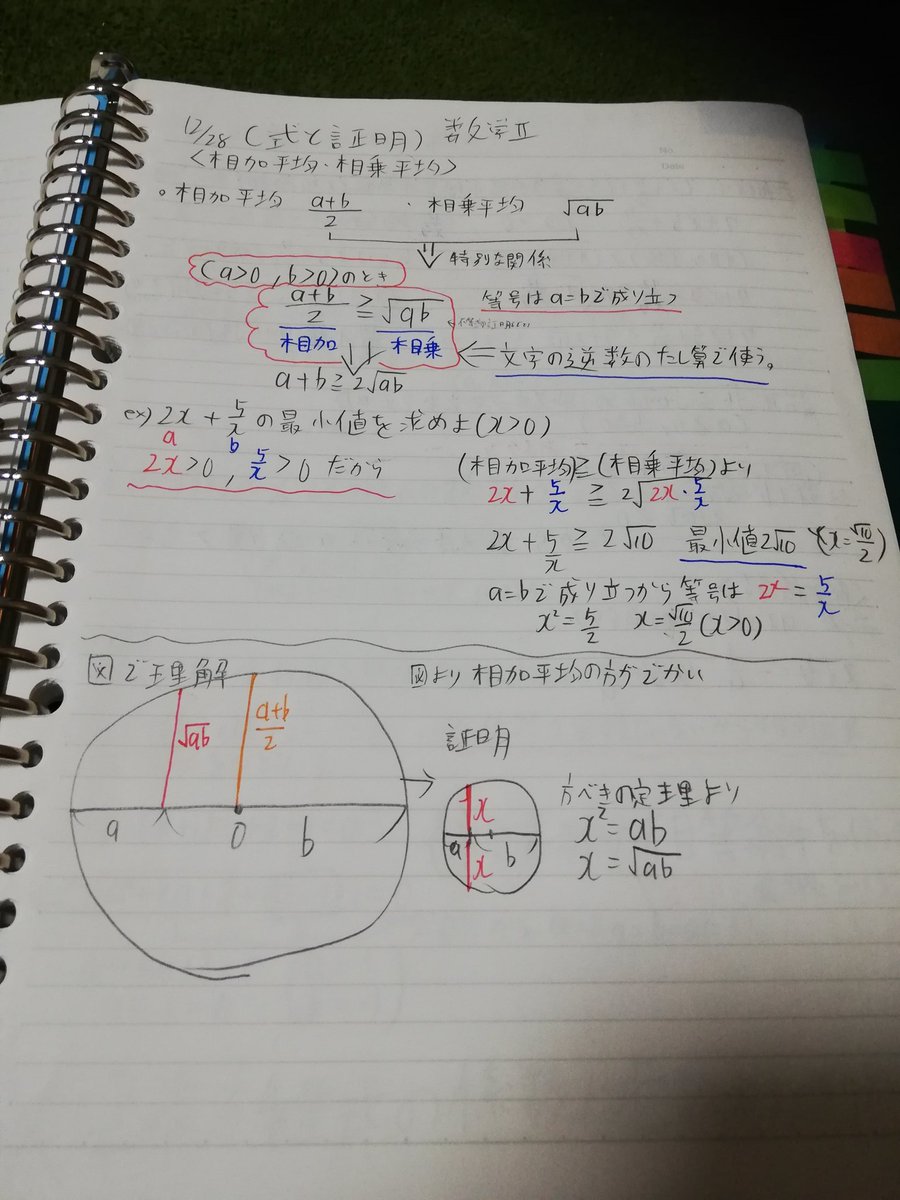 12/28 (式と証明) 数学Ⅱ
<相加平均・相乗平均>
。相加平均 a+b/2 ・相乗平均 √ab
⇓ 特別な関係
(a>0, b>0)のとき
a+b/2 ≧ √ab 等号はa=bで成り立つ
相加 相乗 ⇐ 文字の逆数のたし算で使う。
a+b≧2√ab
ex) 2x + 5/x の最小値を求めよ(x>0)
a b
2x>0, 5/x>0 だから (相加平均)≧(相乗平均)より
2x + 5/x ≧ 2√2x・5/x
2x + 5/x ≧ 2√10 最小値2√10 (x=√10/2)
a=bで成り立つから等号は 2x = 5/x
x²=5/2 x=√10/2 (x>0)
図で理解 図より相加平均の方がでかい
√ab a+b/2
証明
a O b
方べきの定理より
x x²=ab
a b
x x=√ab